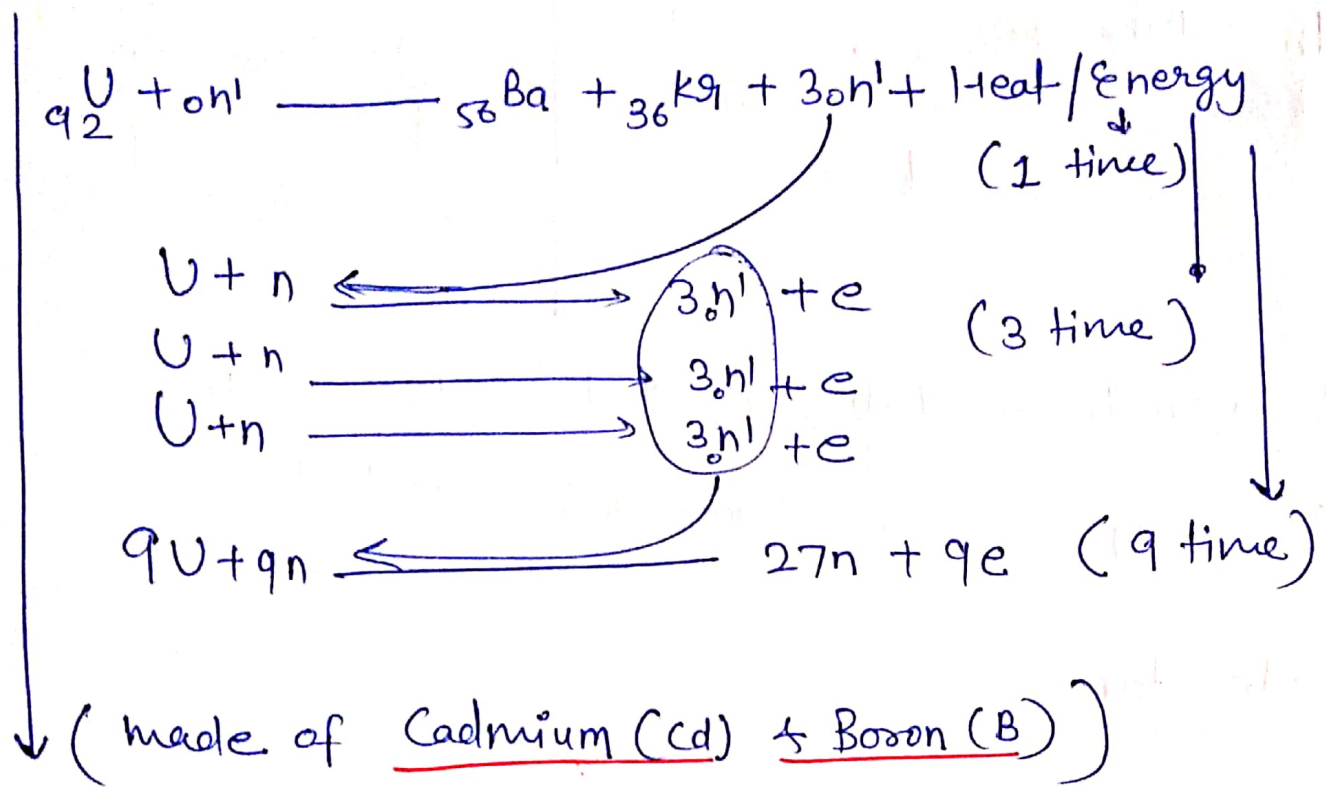 92U + 0n1 56Ba + 36Kr + 30n1 + Heat/Energy
(1 time)
U + n 30n1 + e
(3 time)
U + n 30n1 + e
U + n 30n1 + e
9U + 9n 27n + 9e (9 time)
(made of Cadmium (Cd) & Boron (B))